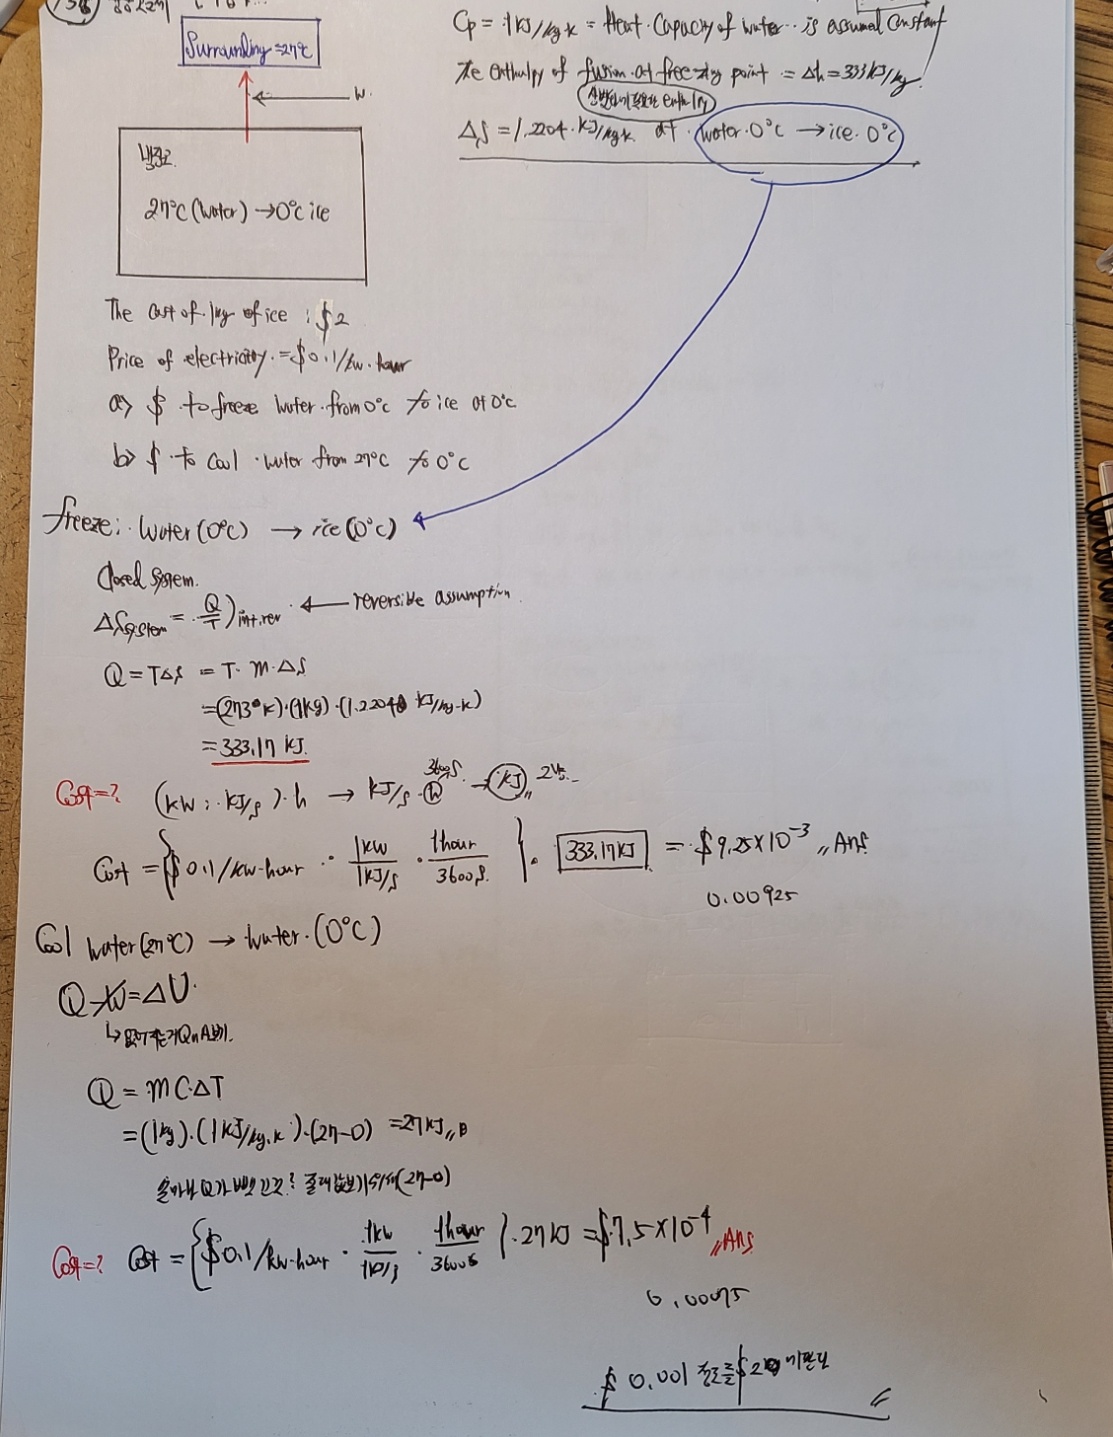 Surrounding = 27°C
W.
27°C (water) → 0°C ice
Cp = 1 kJ/kg·k = Heat Capacity of water is assumed constant
The enthalpy of fusion at freezing point = Δh = 333 kJ/kg
enthalpy
ΔS = 1.2204 · kJ/kg·k at water 0°C → ice 0°C
The cost of 1kg of ice : $2
Price of electricity = $0.1/kw·hour
a> $ to freeze water from 0°C to ice at 0°C
b> $ to Cool water from 27°C to 0°C
freeze: Water (0°C) → ice (0°C)
Closed System.
ΔS system = Q/T ) int,rev ← reversible assumption
Q = TΔS = T · m · ΔS
= (273°K)·(1kg)·(1.2204 kJ/kg-k)
= 333.17 kJ.
Cost=? (kW : kJ/s)·h → kJ/s · h 3600s → kJ
Cost = { $0.1/kw-hour · 1kW/1kJ/s · 1hour/3600s } · 333.17kJ = $9.25×10⁻³ Ans
0.00925
Cool water (27°C) → water (0°C)
Q - W = ΔU
Q = mC·ΔT
= (1kg)·(1kJ/kg.k)·(27-0) = 27kJ
(27-0)
Cost=? Cost = { $0.1/kw-hour · 1kw/1kJ/s · 1hour/3600s } · 27kJ = $7.5×10⁻⁴ Ans
0.00075
$ 0.001 정도를 $2